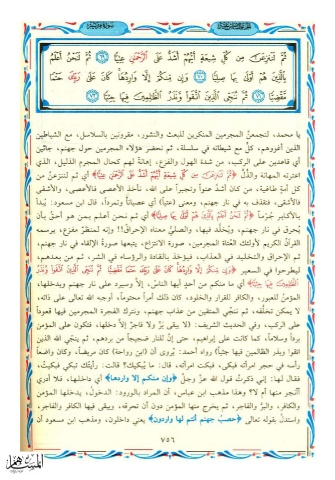 ثُمَّ لَنَنزِعَنَّ مِن كُلِّ شِيعَةٍ أَيُّهُمْ أَشَدُّ عَلَى الرَّحْمَٰنِ عِتِيًّا ﴿٦٩﴾ ثُمَّ لَنَحْنُ أَعْلَمُ
بِالَّذِينَ هُمْ أَوْلَىٰ بِهَا صِلِيًّا ﴿٧٠﴾ وَإِن مِّنكُمْ إِلَّا وَارِدُهَا كَانَ عَلَىٰ رَبِّكَ حَتْمًا
مَّقْضِيًّا ﴿٧١﴾ ثُمَّ نُنَجِّي الَّذِينَ اتَّقَوا وَّنَذَرُ الظَّالِمِينَ فِيهَا جِثِيًّا ﴿٧٢﴾
يا محمد، لنجمعنَّ المجرمين المنكرين للبعث والنشور، مقرونين بالسلاسل، مع الشياطين
الذين أغووهم، كلٌّ مع شيطانه في سلسلة، ثم نحضر هؤلاء المجرمين حول جهنم، جاثين
أي قاعدين على الركب، من شدة الهول والفزع، إهانةً لهم كحال المجرم الذليل، الذي
اعترته المهانة والذُّل ﴿ثُمَّ لَنَنزِعَنَّ مِن كُلِّ شِيعَةٍ أَيُّهُمْ أَشَدُّ عَلَى الرَّحْمَٰنِ عِتِيًّا﴾ أي ثم لننتزعنَّ من
كل أمةٍ طاغية، من كان أشدَّ عتواً وتجبراً على الله، نأخذ الأعصى فالأعصى، والأشقى
فالأشقى، فنقذف به في نار جهنم، ومعنى (عتياً) أي عصياناً وتمرداً، قال ابن مسعود: يُبدأ
بالأكابر جُرماً ﴿ثُمَّ لَنَحْنُ أَعْلَمُ بِالَّذِينَ هُمْ أَوْلَىٰ بِهَا صِلِيًّا﴾ أي ثم نحن أعلم بمن هو أحقُّ بأن
يُحرق في نار جهنم، ويُخلَّد فيها، والصليُّ معناه الإحراق!! وإنه لمنظرٌ مفزع، يرسمه
القرآن الكريم لأولئك العُتاة المجرمين، صورة الانتزاع، يتبعها صورة الإلقاء في نار جهنم،
ثم الإحراق والتخليد في العذاب، فيؤخذ بالقادة والرؤساء في الشر، ثم من بعدهم،
ليطرحوا في السعير ﴿وَإِن مِّنكُمْ إِلَّا وَارِدُهَا كَانَ عَلَىٰ رَبِّكَ حَتْمًا مَّقْضِيًّا ثُمَّ نُنَجِّي الَّذِينَ اتَّقَوا وَّنَذَرُ
الظَّالِمِينَ فِيهَا جِثِيًّا﴾ أي ما منكم من أحدٍ أيها الناسُ، إلَّا وسيرد على نار جهنم ويدخلها،
المؤمنُ للعبور، والكافر للقرار والخلود، كان ذلك أمراً محتوماً، أوجبه الله تعالى على ذاته،
لا يمكن تخلُّفه، ثم ننجّي المتقين من عذاب جهنم، ونترك الفجرة المجرمين فيها قعوداً
على الركب، وفي الحديث الشريف: (لا يبقى بَرٌّ ولا فاجرٌ إلَّا دخلها، فتكون على المؤمن
برداً وسلاماً، كما كانت على إبراهيم، حتى إنَّ للنار ضجيجاً من بردهم، ثم ينجّي الله الذين
اتقوا ويذر الظالمين فيها جثياً) رواه أحمد: يُروى أنَّ (ابن رواحة) كان مريضاً، وكان واضعاً
رأسه في حجر امرأته فبكى، فبكت امرأته، قال: ما يُبكيكِ؟ قالت: رأيتُك تبكي فبكيتُ،
فقال لها: إني ذكرتُ قول الله عزَّ وجلَّ ﴿وإن منكم إلا واردها﴾ أي داخلها، فلا أدري
أأنجو منها أم لا؟ وهذا مذهب ابن عباس، أن المراد بالورود: الدخولُ، يدخلها المؤمن
والكافر، والبرُّ والفاجر، ثم يخرج منها المؤمن دون أن تحرقه، ويبقى فيها الكافر والفاجر،
واستدلَّ بقوله تعالى ﴿حصبُ جهنم أنتم لها واردون﴾ يعني داخلون، ومذهب ابن مسعود أن
٧٥٦